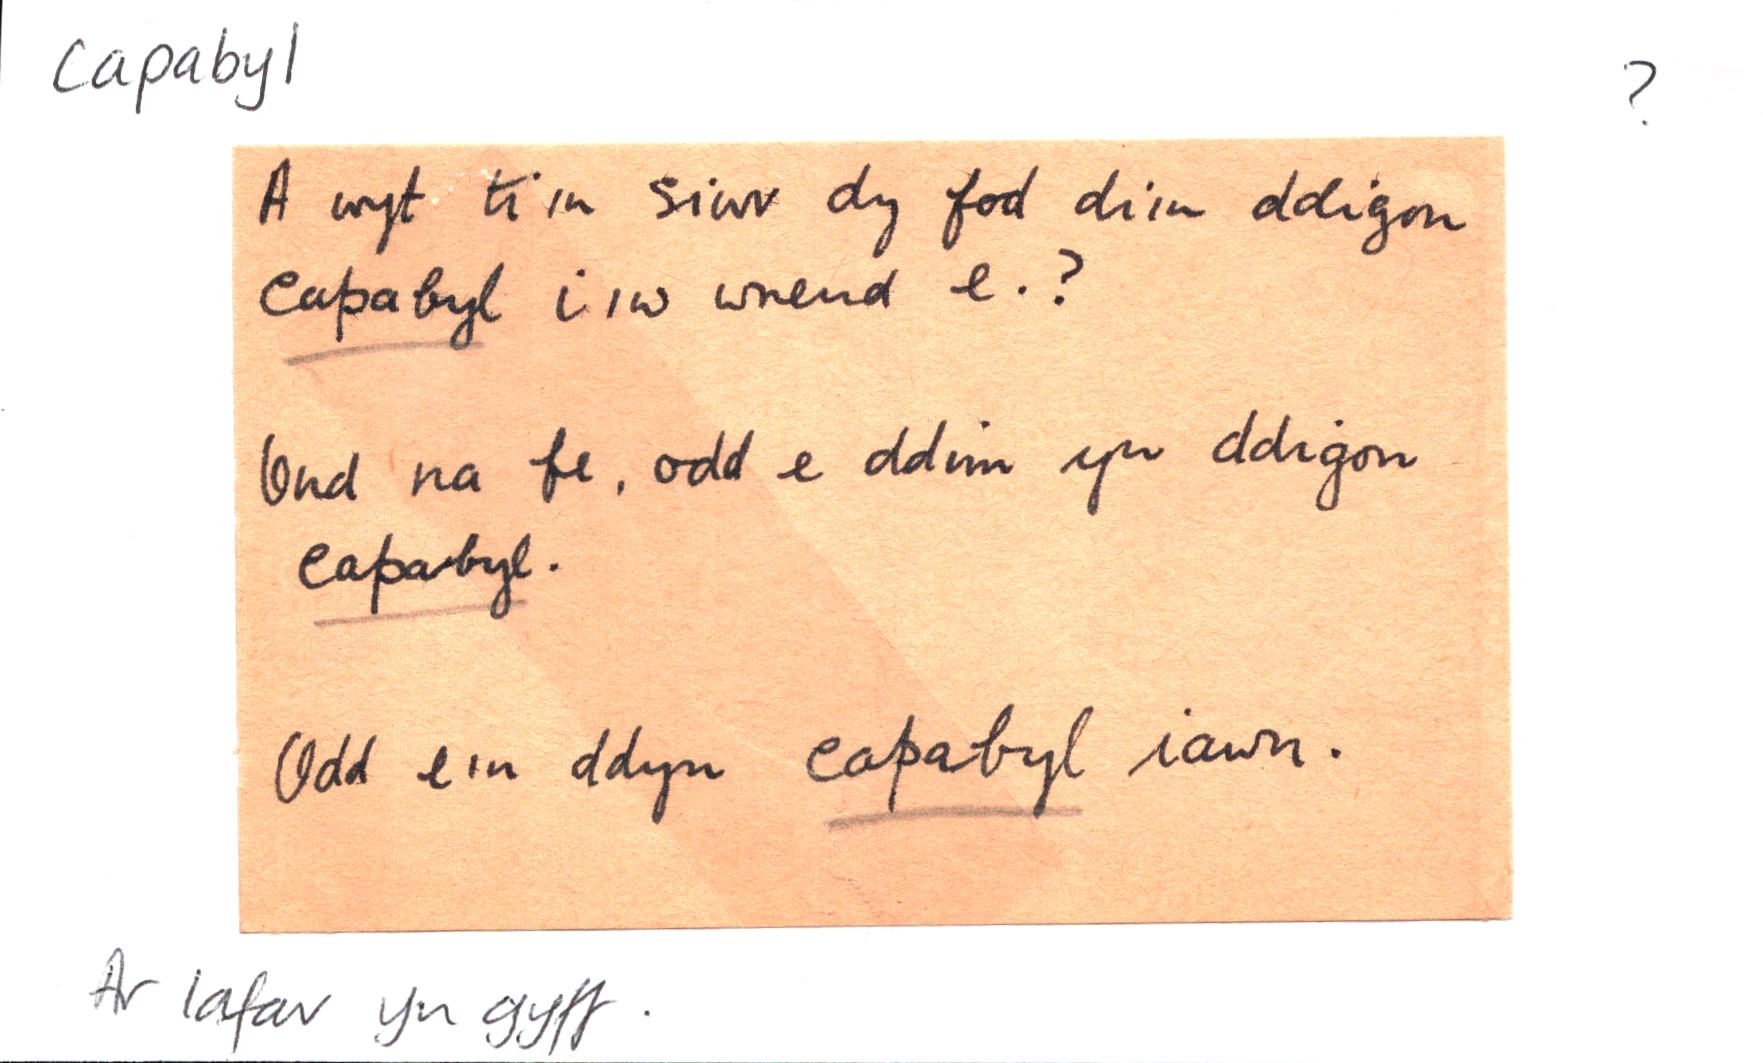 Capabyl
?
A wyt ti'n siwr dy fod di'n ddigon
capabyl i'w wneud e.?
Ond na fe, odd e ddim yn ddigon
capabyl.
Odd e'n ddyn capabyl iawn.
Ar lafar yn gyff.